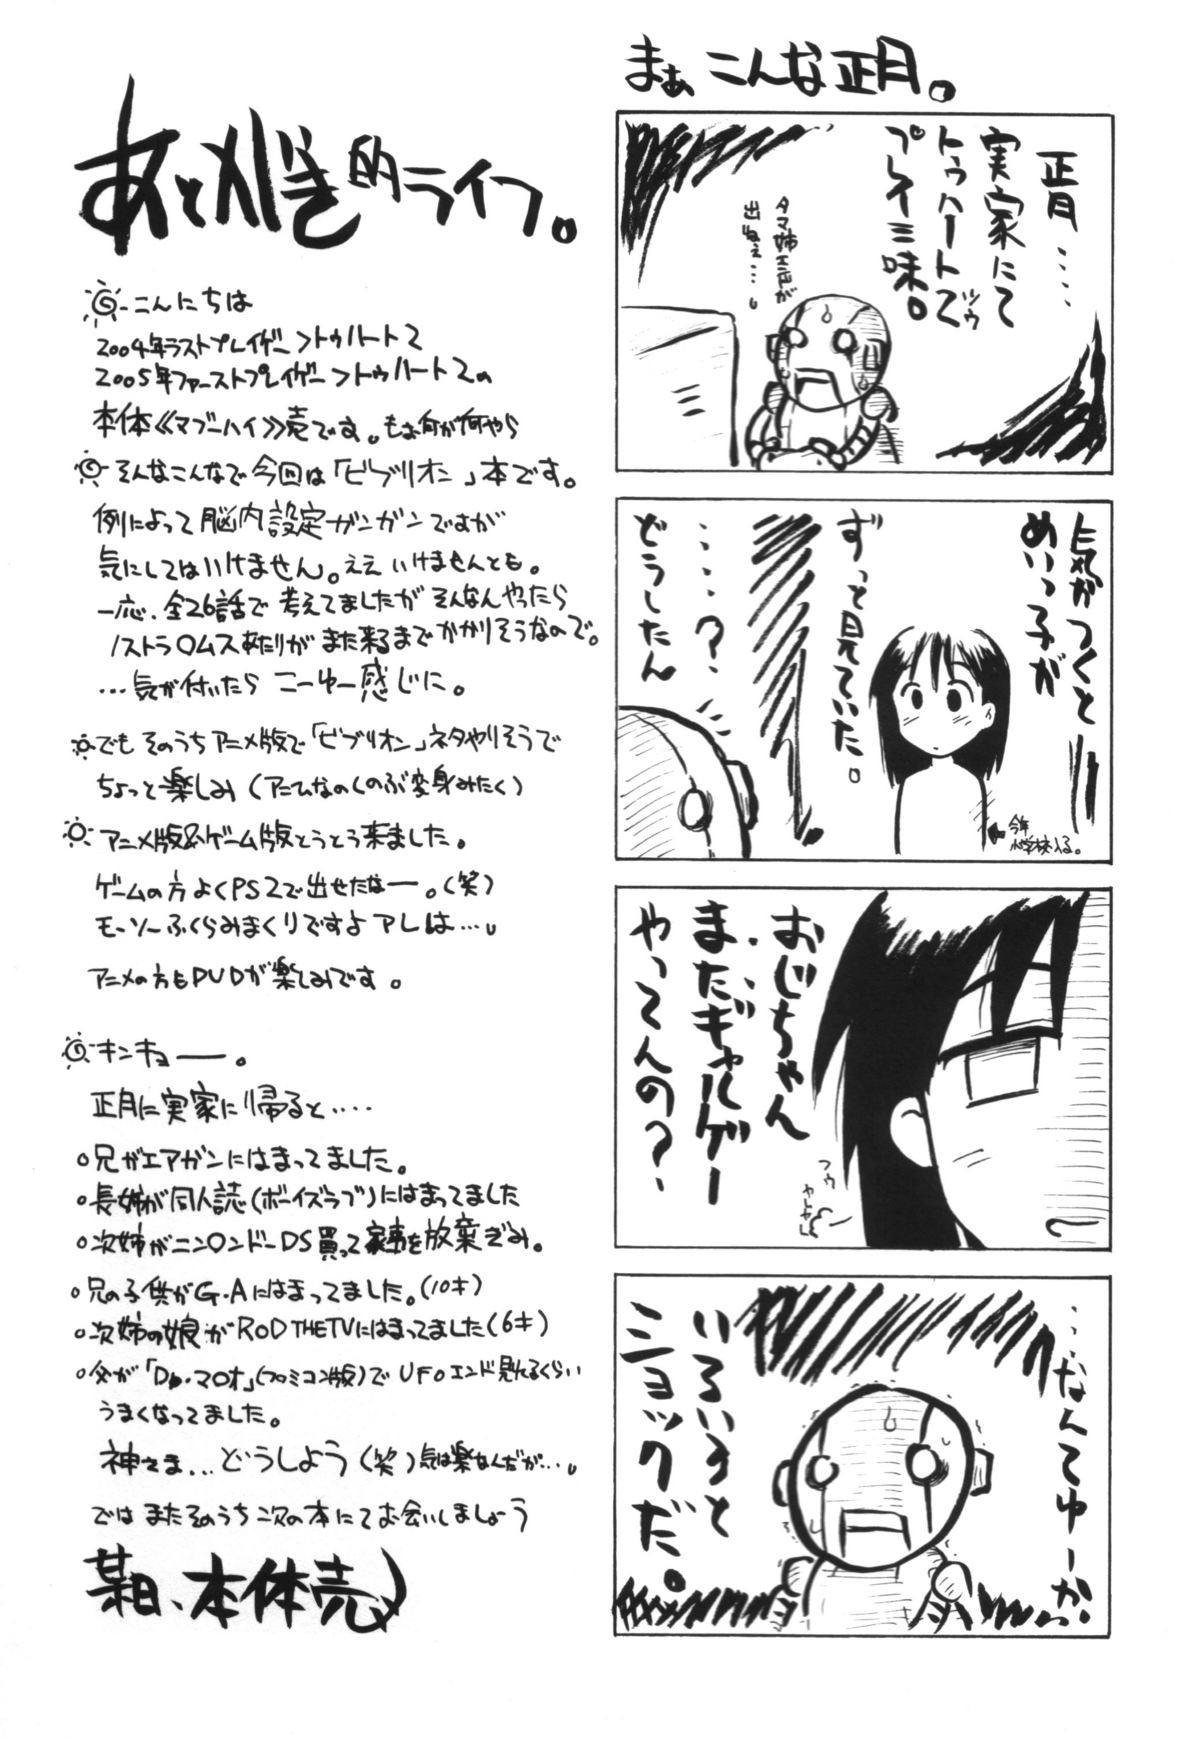 まぁ こんな正月。
正月‥‥
実家にて
トゥハート2
ツゥ
プレイ三味。
タマ姉エロが
出ねぇ…。
気がつくと
めいっ子が
ずっと見ていた。
今年
小学校入る。
‥‥?
どうしたん
おじちゃん
まだギャルゲー
やってんの?
フゥ
やれやれ
…なんてゆーか
いろいろと
ショックだ。
あとがき的ライフ。
こんにちは
2004年ラストプレイゲーントゥハート2
2005年ファーストプレイゲーントゥハート2の
本体《マブーハイ》売です。もぉ何が何やら
そんなこんなで今回は「ビブリオン」本です。
例によって脳内設定ガンガンですが
気にしてはいけません。ええ いけませんとも。
一応、全26話で考えてましたがそんなんやったら
ノストラ○ムスあたりがまた来るまでかかりそうなので。
…気が付いたら こーゆー感じに。
でも そのうちアニメ版で「ビブリオン」ネタやりそうで
ちょっと楽しみ(アニひなのしのぶ変身みたく)
アニメ版&ゲーム版とうとう来ました。
ゲームの方よくPS2で出せたなー。(笑)
モーソーふくらみまくりですよアレは…。
アニメの方もDVDが楽しみです。
キンキョー。
正月に実家に帰ると‥‥
○兄がエアガンにはまってました。
○長姉が同人誌(ボーイズラブ)にはまってました
○次姉がニン○ンドーDS買って家事を放棄ぎみ。
○兄の子供がG・Aにはまってました。(10才)
○次姉の娘がROD THE TVにはまってました(6才)
○父が「Dr.マ○オ」(フ○ミコン版)でUFOエンド見れるくらい
うまくなってました。
神さま…どうしよう(笑)気は楽なんだが…。
ではまたそのうち次の本にてお会いしましょう
某日、本体売